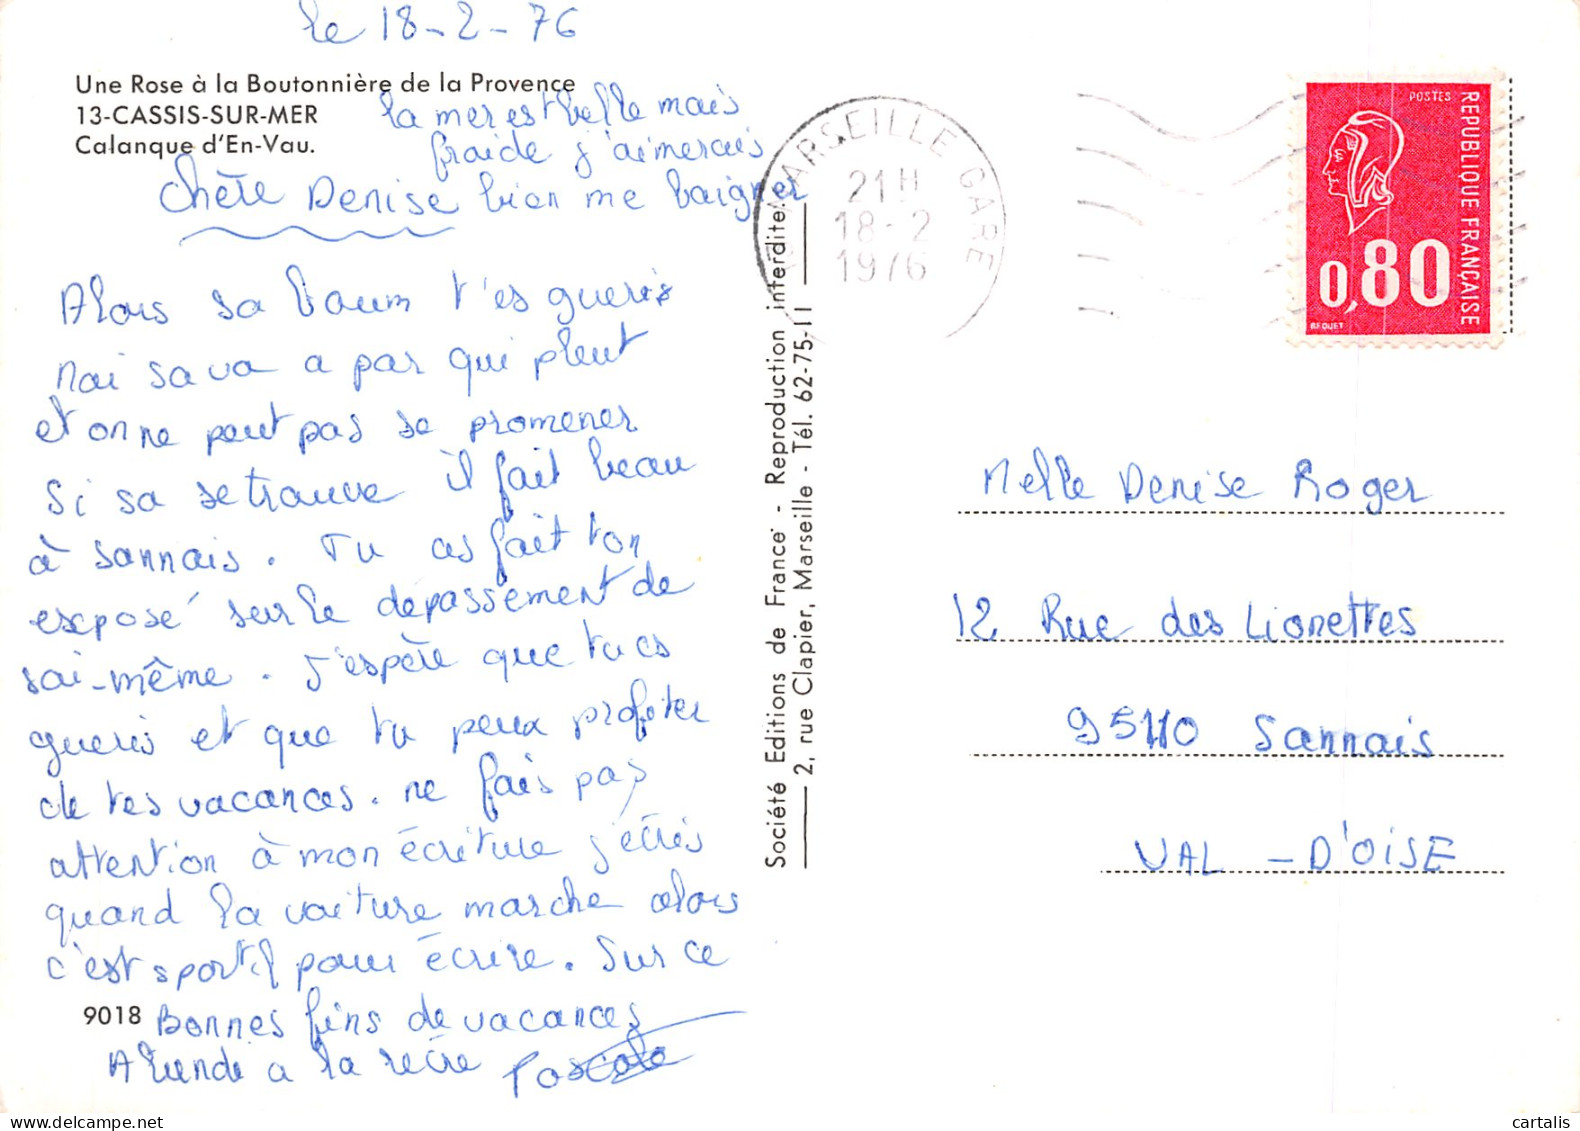 le 18-2-76
Une Rose à la Boutonnière de la Provence
13-CASSIS-SUR-MER
Calanque d'En-Vau.
la mer est belle mais
froide j'aimerais
bien me baigner
Chère Denise
Alors sa boum t'es gueris
Moi sa va a par qui pleut
et on ne peut pas se promener
Si sa se trouve il fait beau
à Sannais. Tu as fait ton
exposé sur le dépassement de
soi-même. J'espère que tu es
gueris et que tu peux profiter
de tes vacances. ne fais pas
attention à mon écriture j'écris
quand la voiture marche alors
c'est sportif pour écrire. Sur ce
Bonnes fins de vacances
A lundi a la récré Pascale
9018
Société Editions de France - Reproduction interdite
2, rue Clapier, Marseille - Tél. 62-75-11
MARSEILLE GARE
21H
18-2
1976
POSTES
REPUBLIQUE FRANÇAISE
0,80
BEQUET
Melle Denise Roger
12 Rue des Lionettes
95110 Sannais
VAL - D'OISE
cartalis